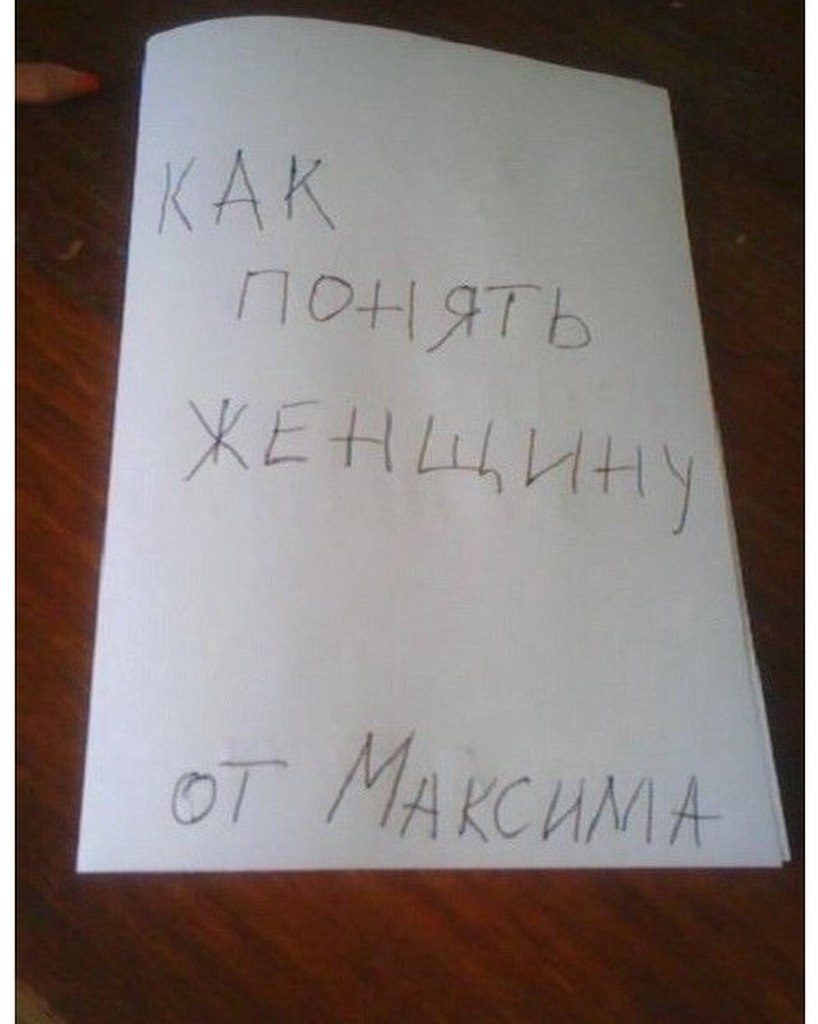 КАК
ПОНЯТЬ
ЖЕНЩИНУ
ОТ МАКСИМА